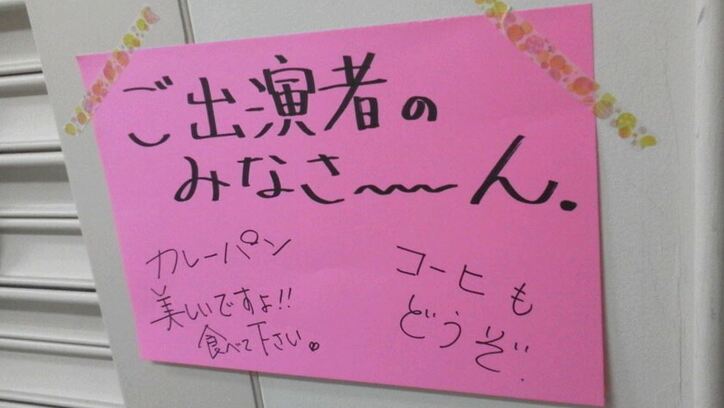 ご出演者の
みなさ〜〜ん.
カレーパン
美しいですよ!!
食べて下さい。
コーヒも
どうぞ.